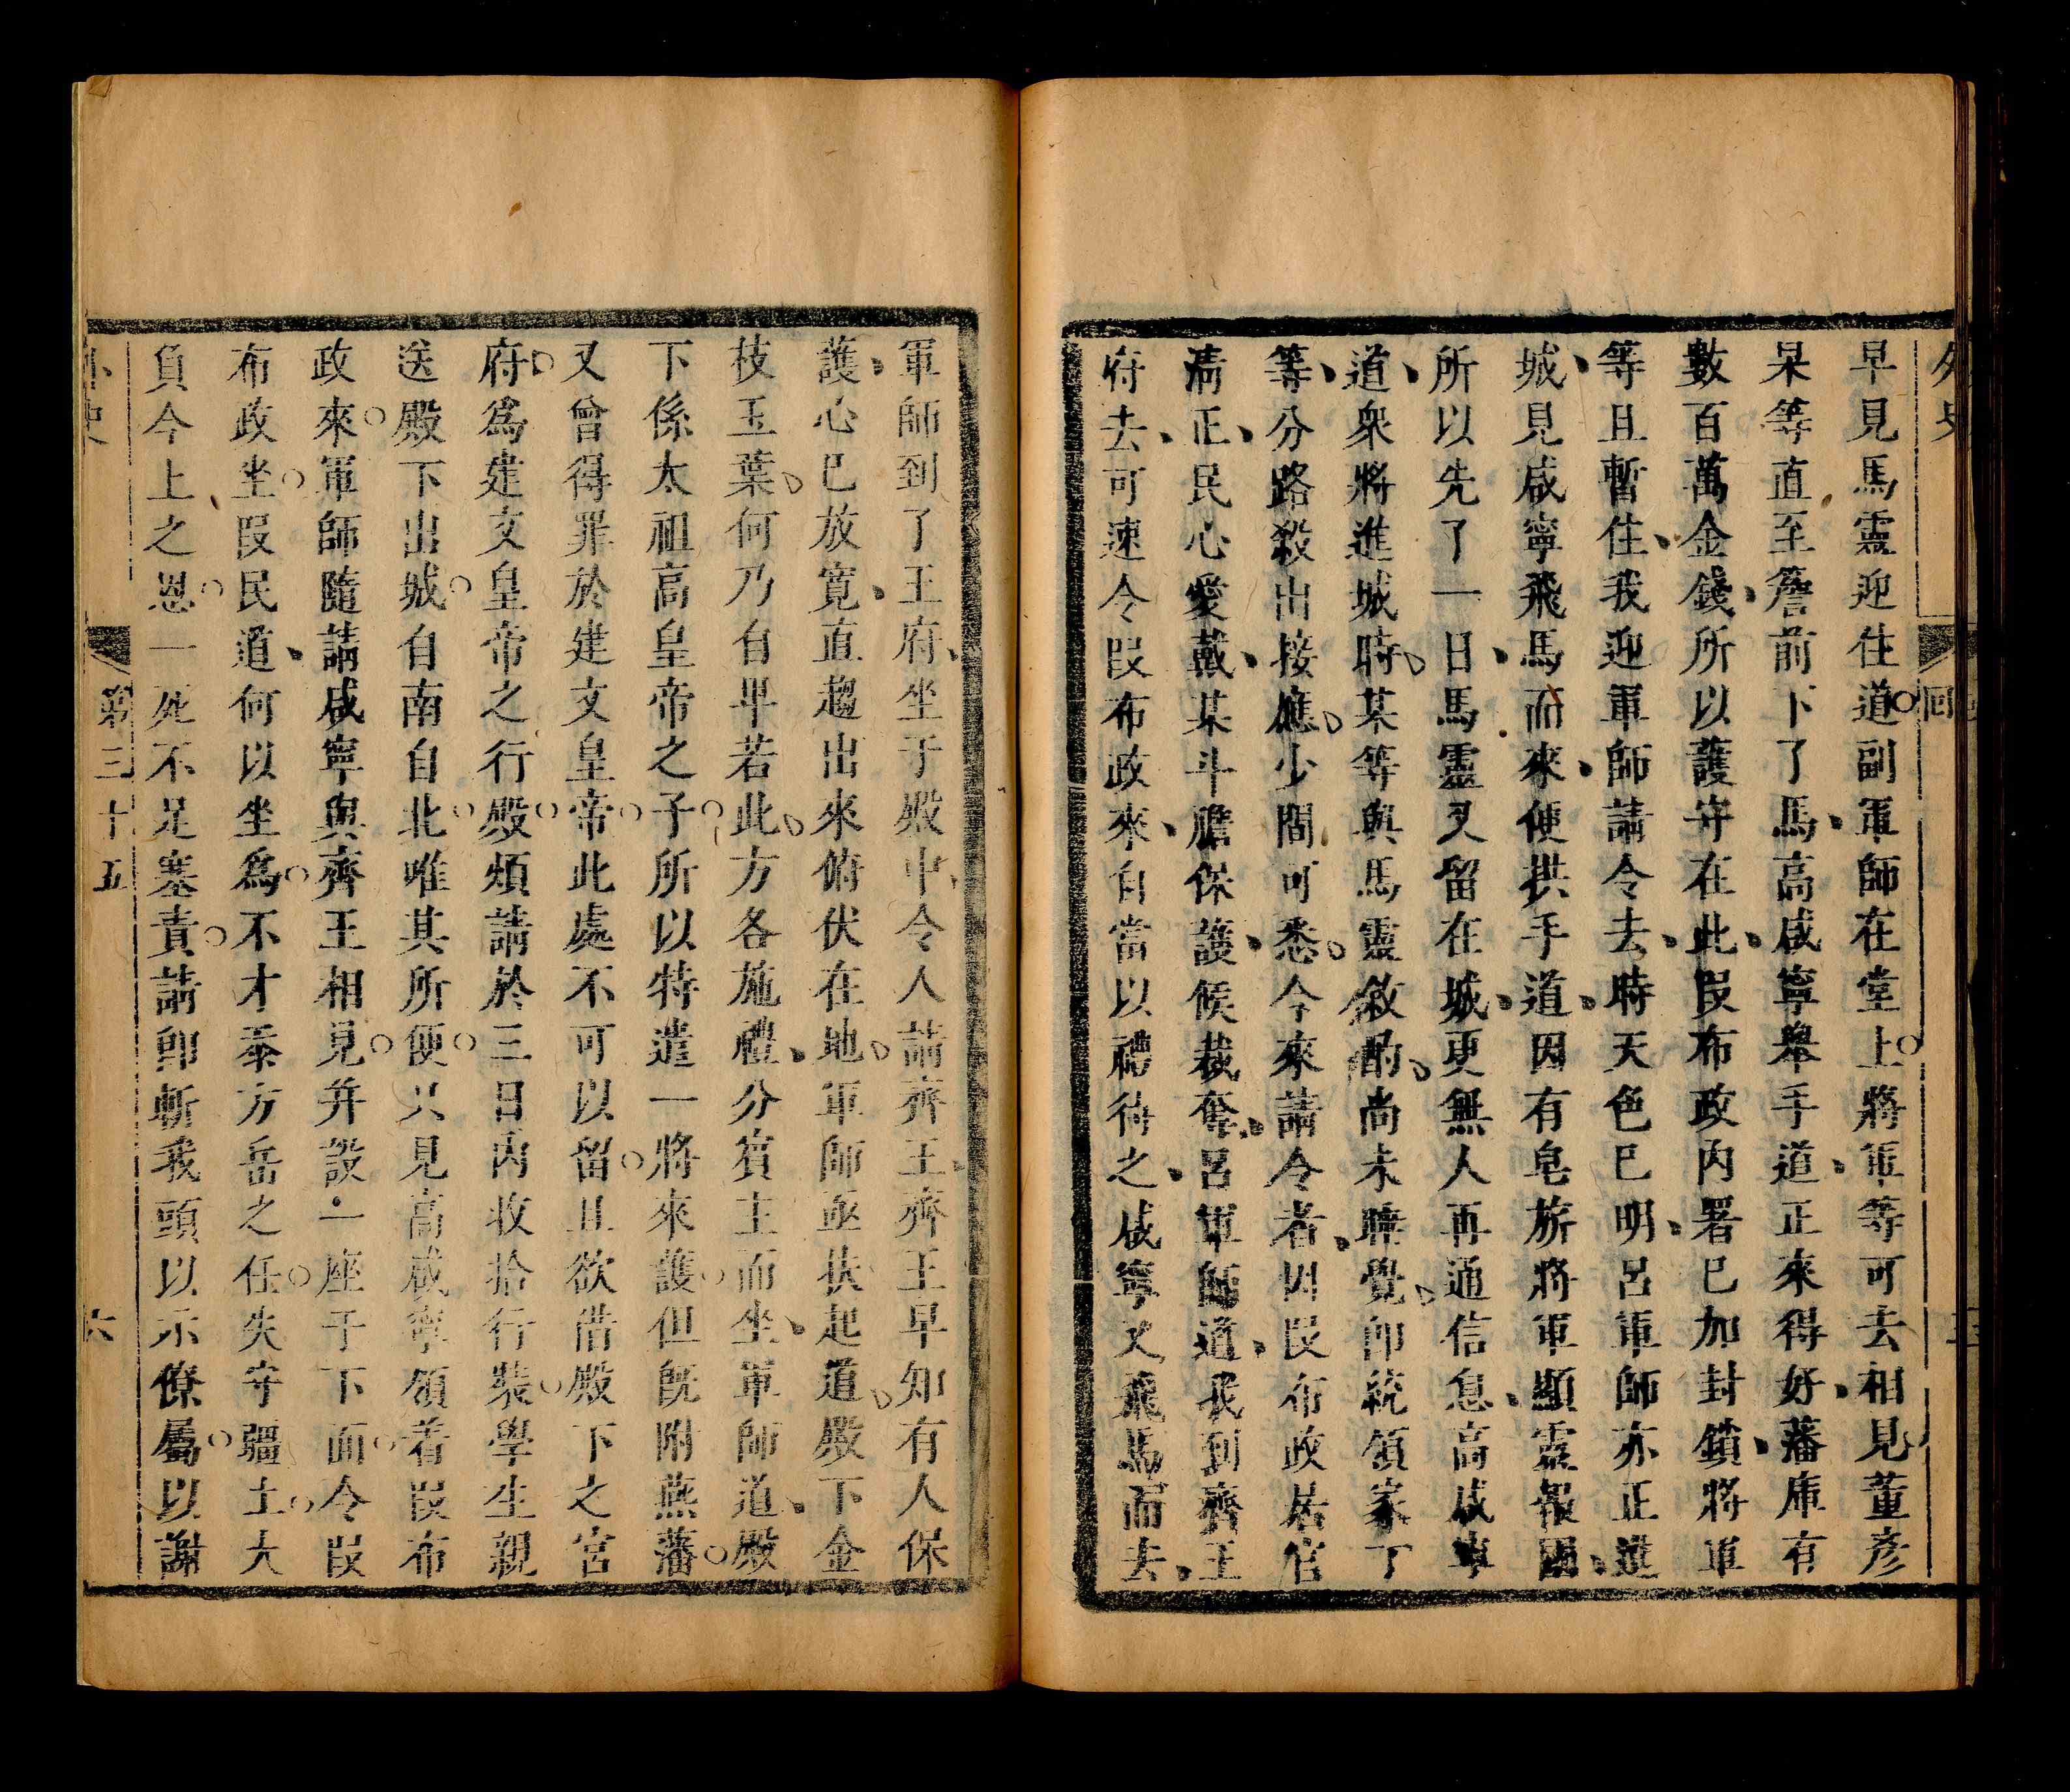 外史
回
早見馬靈迎住道副軍師在堂上將軍等可去相見董彥
杲等直至簷前下了馬高咸寧舉手道正來得好藩庫有
數百萬金錢所以護守在此段布政內署已加封鎖將軍
等且暫住我迎軍師請令去時天色已明呂軍師亦正進
城見咸寧飛馬而來便拱手道因有皂旂將軍顯靈報國
所以先了一日馬靈又留在城更無人再通信息高咸寧
道衆將進城時某等與馬靈敘酌尚未睡覺卽統領家丁
等分路殺出接應少間可悉今來請令者因段布政居官
清正民心愛戴某斗膽保護候裁奪呂軍師道我到齊王
府去可速令段布政來自當以禮待之咸寧又飛馬而去
軍師到了王府坐于殿中令人請齊王齊王早知有人保
護心已放寬直趨出來俯伏在地軍師亟扶起道殿下金
枝玉葉何乃自卑若此方各施禮分賓主而坐軍師道殿
下係太祖高皇帝之子所以特遣一將來護但旣附燕藩
又曾得罪於建文皇帝此處不可以留且欲借殿下之宮
府爲建文皇帝之行殿煩請於三日內收拾行裝學生親
送殿下出城自南自北唯其所便只見高咸寧領着段布
政來軍師隨請咸寧與齊王相見并設一座于下面令段
布政坐段民道何以坐爲不才忝方岳之任失守疆土大
負今上之恩一死不足塞責請卽斬我頭以示僚屬以謝
外史
第三十五
六